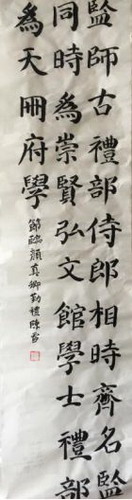 監師古禮部侍郎相時齊名監
同時為崇賢弘文館學士禮部
為天冊府學
節臨顏真卿勤禮